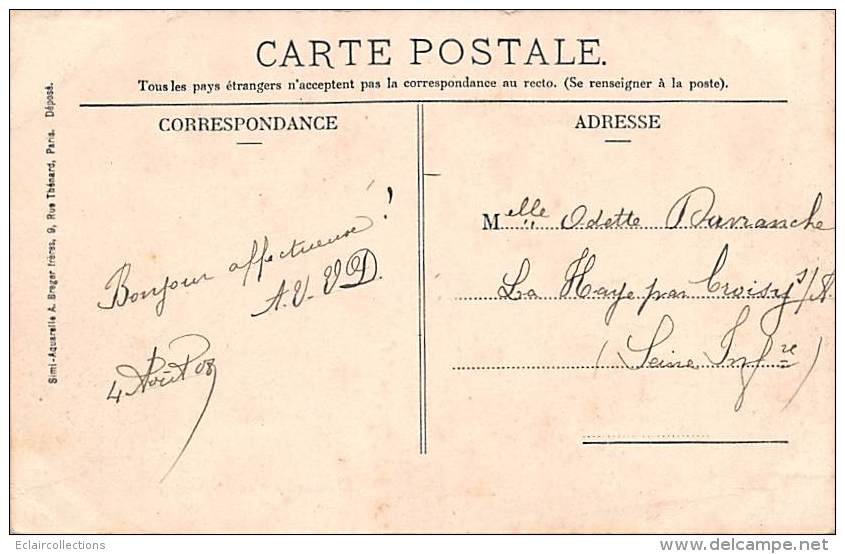 CARTE POSTALE.
Tous les pays étrangers n'acceptent pas la correspondance au recto. (Se renseigner à la poste).
CORRESPONDANCE
Bonjour affectueux!
A.V-VD.
4 Août 08
ADRESSE
Melle Odette Davranche
La Haye par Croisy s/A.
(Seine Infre)
Simi-Aquarelle A. Breger frères, 9, Rue Thénard, Paris. Déposé.
Eclaircollections
delcampe.net